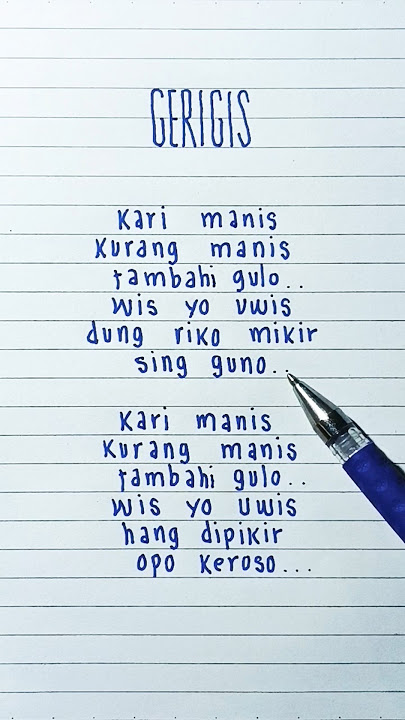 GERIGIS
Kari manis
Kurang manis
tambahi gulo..
wis yo uwis
dung riko mikir
sing guno..
Kari manis
Kurang manis
tambahi gulo..
wis yo uwis
hang dipikir
opo keroso...